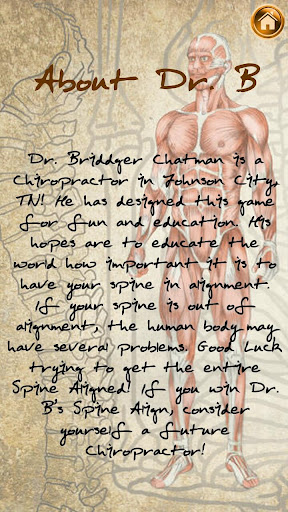 About Dr. B
Dr. Briddger Chatman is a
Chiropractor in Johnson City,
TN! He has designed this game
for fun and education. His
hopes are to educate the
world how important it is to
have your spine in alignment.
If your spine is out of
alignment, the human body may
have several problems. Good Luck
trying to get the entire
Spine Aligned! If you win Dr.
B's Spine Align, consider
yourself a future
Chiropractor!